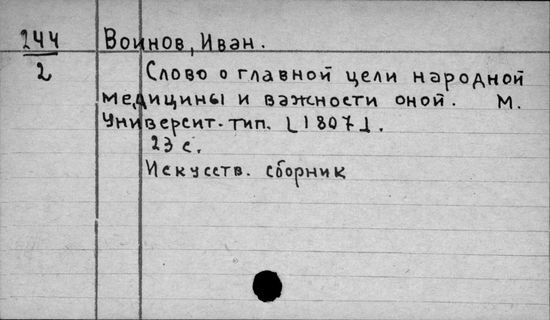 244 Воинов, Иван.
2 Слово о главной цели народной
медицины и важности оной. М.
Университ. тип. [1807].
23 с.
Искусств. сборник